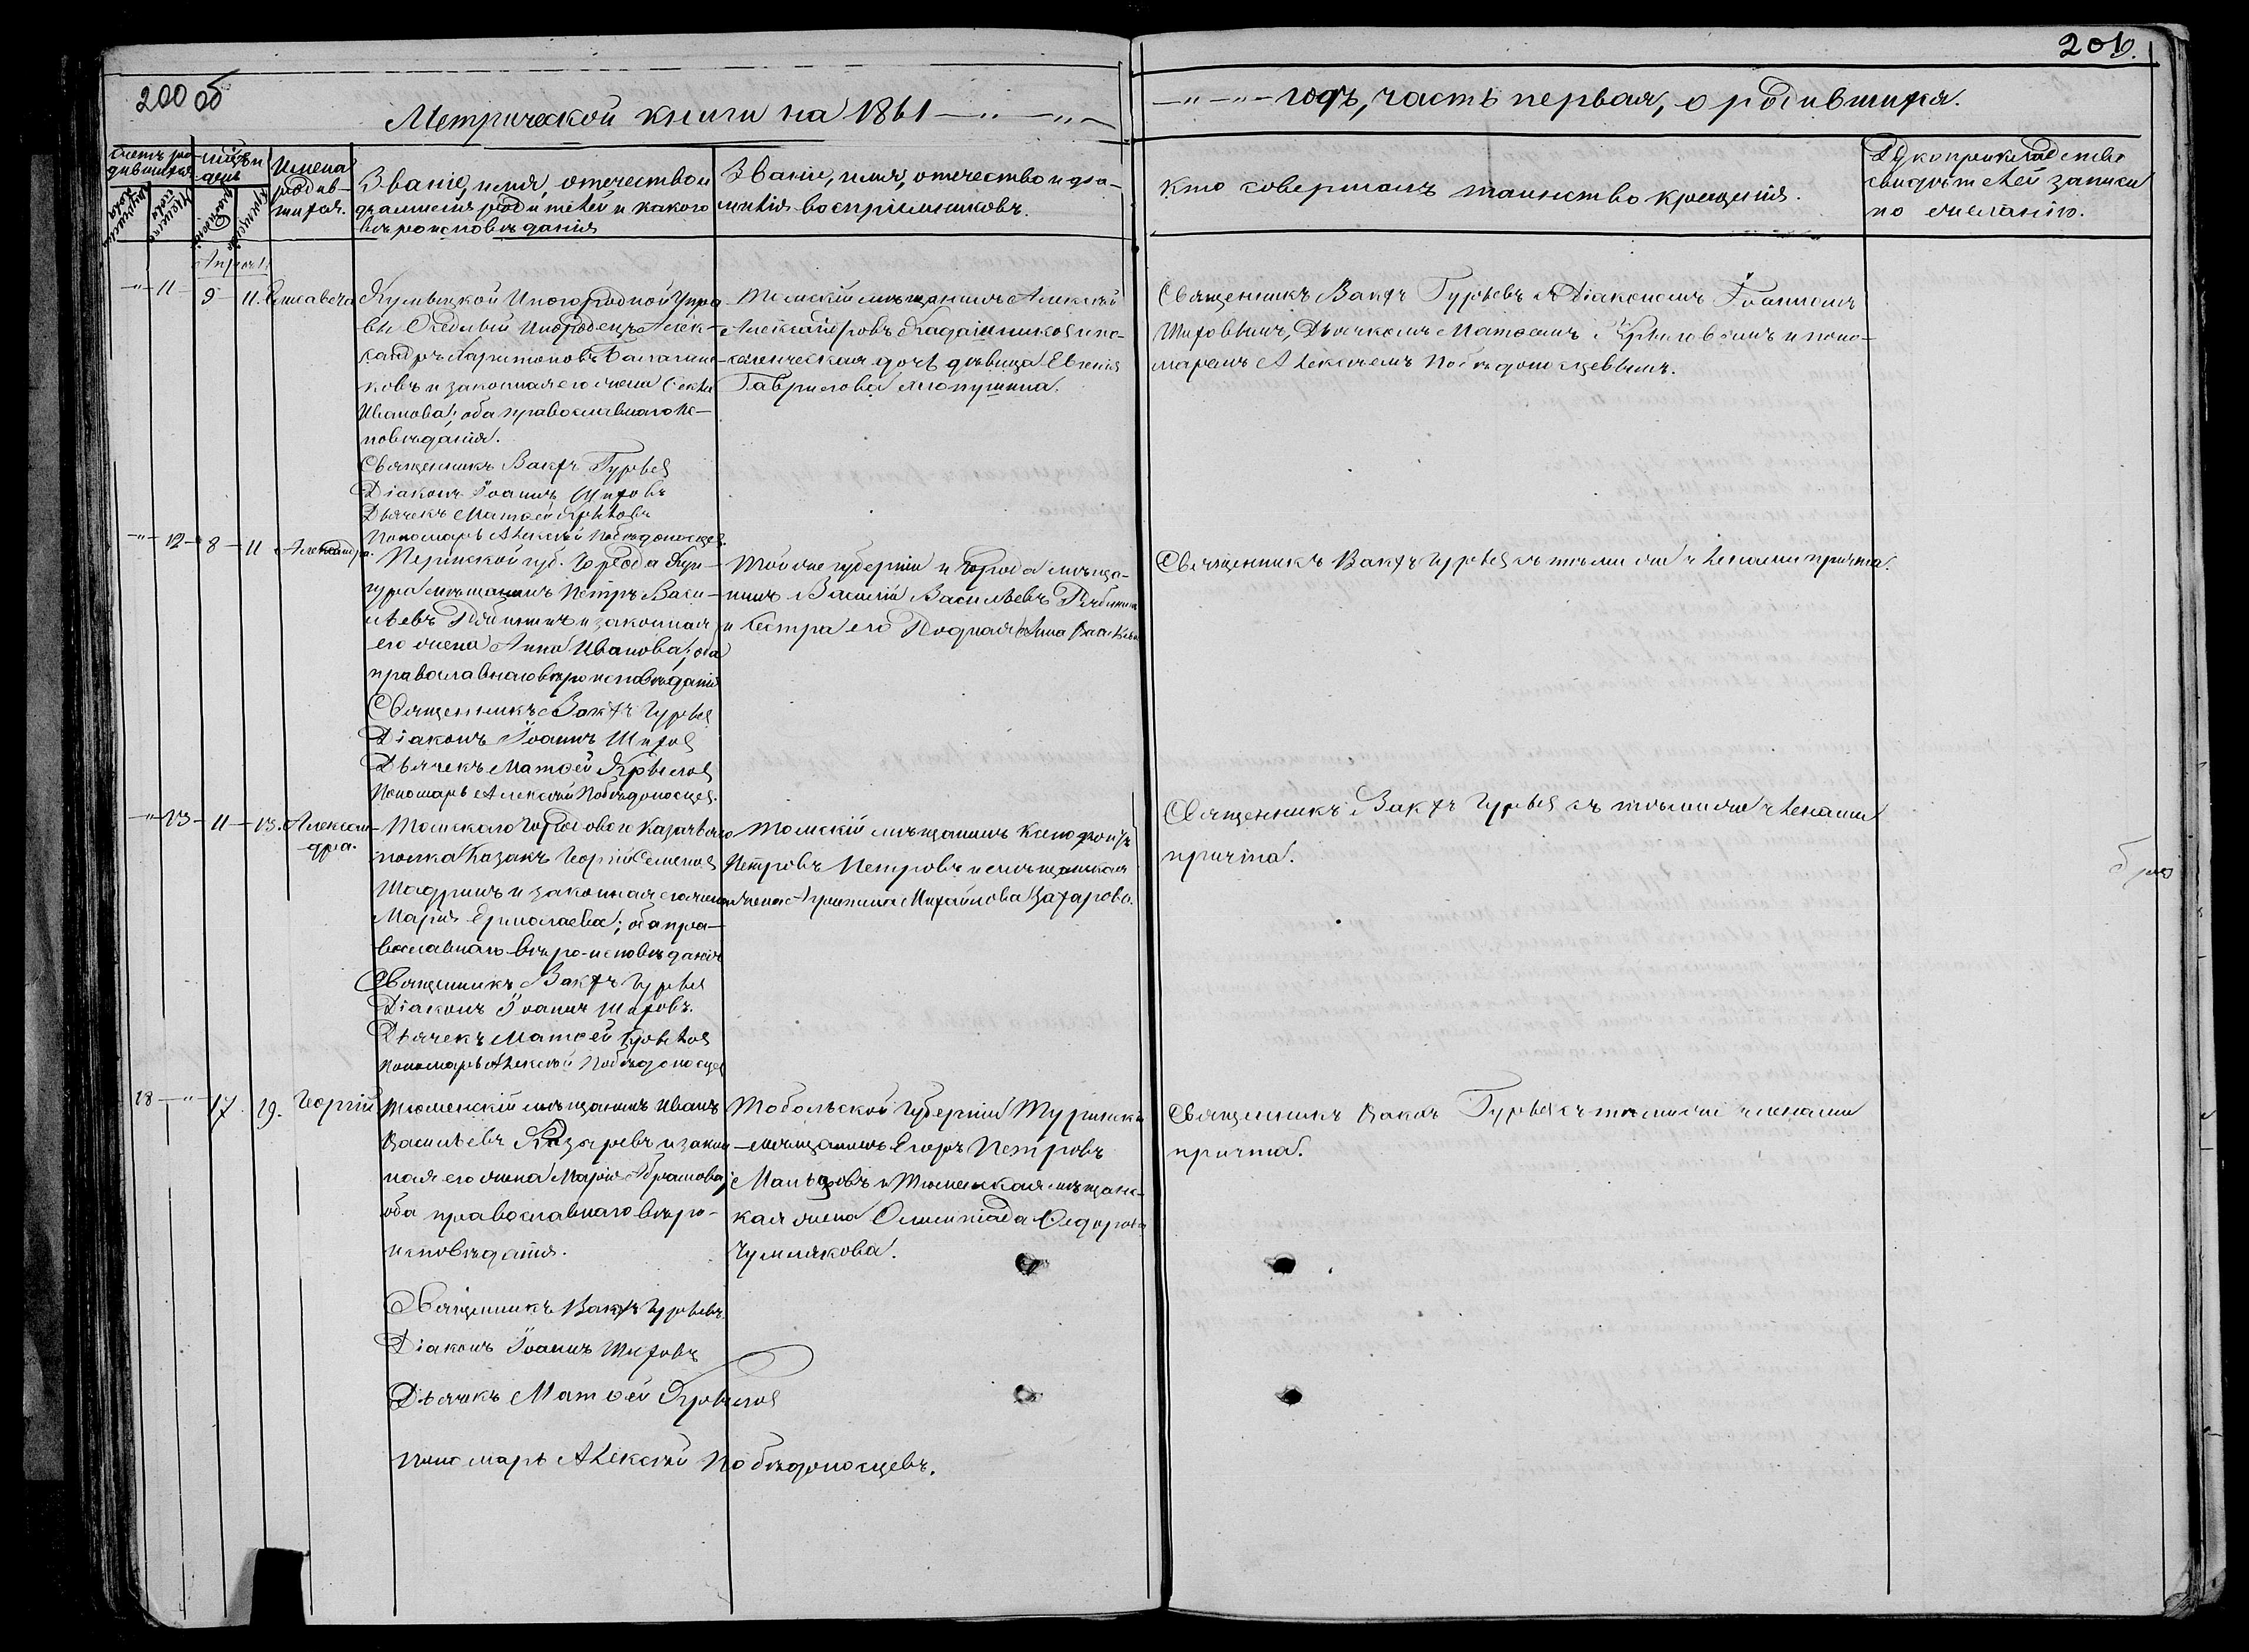 200 об
201.
Метрической книги на 1861 — " — " —
— " — " — годъ, часть первая, о родившихся.
Счетъ ро-
дившихся
Мужеска
пола
Женска
пола
Мѣсяцъ и
день
Рожденія
Крещенія
Имена
родив-
шихся.
Званіе, имя, отчество и
фамилія родителей и какого
вѣроисповѣданія
Званіе, имя, отчество и фа-
милія воспріемниковъ.
Кто совершалъ таинство крещенія.
Рукоприкладство
свидѣтелей записи
по желанію.
Апрѣль
— " — 11 — 9 — 11. Елисавета
Инородной Упра
вы Оседлый Инородецъ Алек-
сандръ Харитоновъ
ковъ и законная его жена
Иванова; оба православнаго ис-
повѣданія.
Священникъ Вакхъ Гурьев
Діаконъ Іоаннъ Шиховъ
Дьячекъ Матѳей Крыловъ
Пономарь Алексѣй Побѣдоносцев.
Томскій мѣщанинъ Алексѣй
Александровъ и по-
дочь дѣвица Евгенія
Гаврилова
Священникъ Вакхъ Гурьевъ съ Діакономъ Іоанномъ
Шиховымъ, Дьячкомъ Матѳеемъ Крыловымъ и поно-
маремъ Алексѣемъ Побѣдоносцевымъ.
— " — 12 — 8 — 11 Александра.
Пермской губ. Города Кун-
гура мѣщанинъ Петръ Васи-
льевъ Рябининъ и законная
его жена Анна Иванова; оба
православнаго вѣроисповѣданія
Священникъ Вакхъ Гурьев
Діаконъ Іоаннъ Шихов
Дьячекъ Матѳей Крылов
Пономарь Алексѣй Побѣдоносцев.
Той же губерніи и города мѣща-
нинъ Василій Васильевъ Рябинин
и сестра его Родная Анна Василье
Священникъ Вакхъ Гурьев съ тѣми же членами причта.
— " — 13 — 11 — 13. Алексан-
дра.
Томскаго Городоваго Казачьяго
полка Казакъ Георгій Семенов
Шадринъ и законная его жена
Марія Ермолаева; оба пра-
вославнаго вѣро-исповѣданія
Священникъ Вакхъ Гурьев
Діаконъ Іоаннъ Шиховъ.
Дьячекъ Матѳей Крылов
Пономарь Алексѣй Побѣдоносцев
Томскій мѣщанинъ Ксенофонтъ
Петровъ Петровъ и мѣщанская
жена Агрипина Михайлова Захарова.
Священникъ Вакхъ Гурьев съ тѣми же членами
причта.
18 — " — 17. 19. Георгій
Тюменскій мѣщанинъ Иванъ
Васильевъ и закон
ная его жена Марія Абрамова;
оба православнаго вѣро-
исповѣданія.
Священникъ Вакхъ Гурьевъ.
Діаконъ Іоаннъ Шиховъ
Дьячекъ Матѳей Крылов
Пономарь Алексѣй Побѣдоносцевъ.
Тобольской Губерніи Туринскій
мѣщанинъ Егоръ Петровъ
и Тюменская мѣщанс-
кая жена Олимпіада Ѳедорова
Чумлякова.
Священникъ Вакхъ Гурьев съ тѣми же членами
причта.